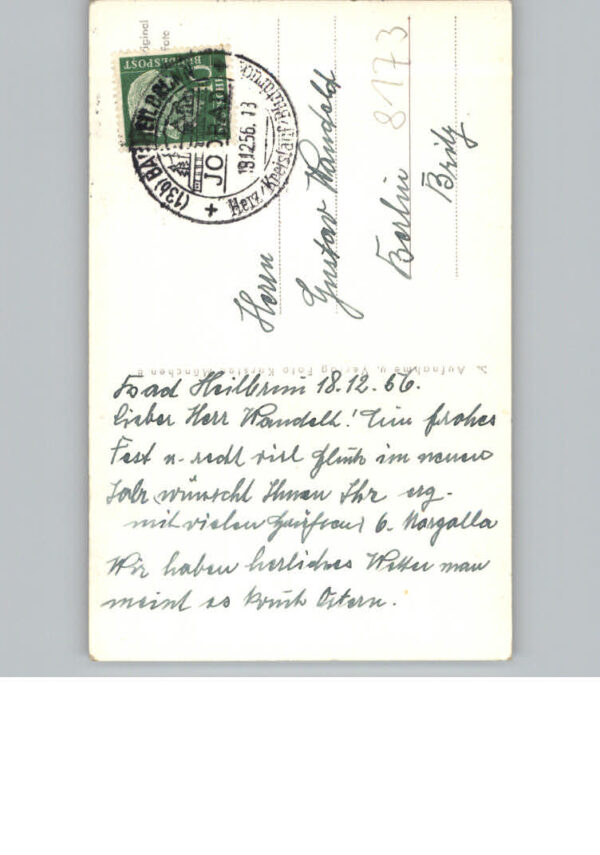 Original
Foto
BUNDESPOST
(13b) BAD HEILBRUNN
JODBAD
18.12.56. 13
Harz/Kreislauf/Blutdruck
8173
Herrn
Gustav Wandelt
Berlin
Britz
Aufnahme u. Verlag Foto München
Bad Heilbrunn 18.12.56.
Lieber Herr Wandelt! Ein frohes
Fest u. recht viel Glück im neuen
Jahr wünscht Ihnen Ihr erg.
mit vielen Grüssen G. Margalla
Wir haben herliches Wetter man
meint es kommt Ostern.